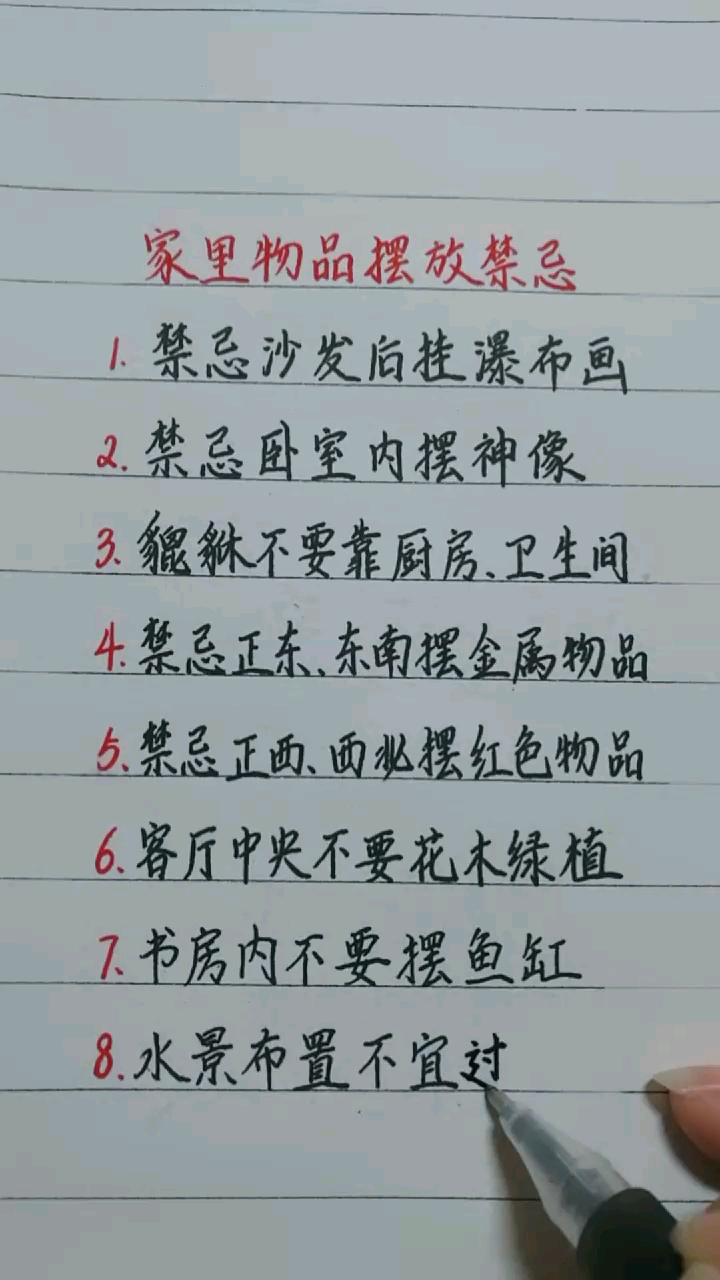 家里物品摆放禁忌
1. 禁忌沙发后挂瀑布画
2. 禁忌卧室内摆神像
3. 貔貅不要靠厨房、卫生间
4. 禁忌正东、东南摆金属物品
5. 禁忌正西、西北摆红色物品
6. 客厅中央不要花木绿植
7. 书房内不要摆鱼缸
8. 水景布置不宜过